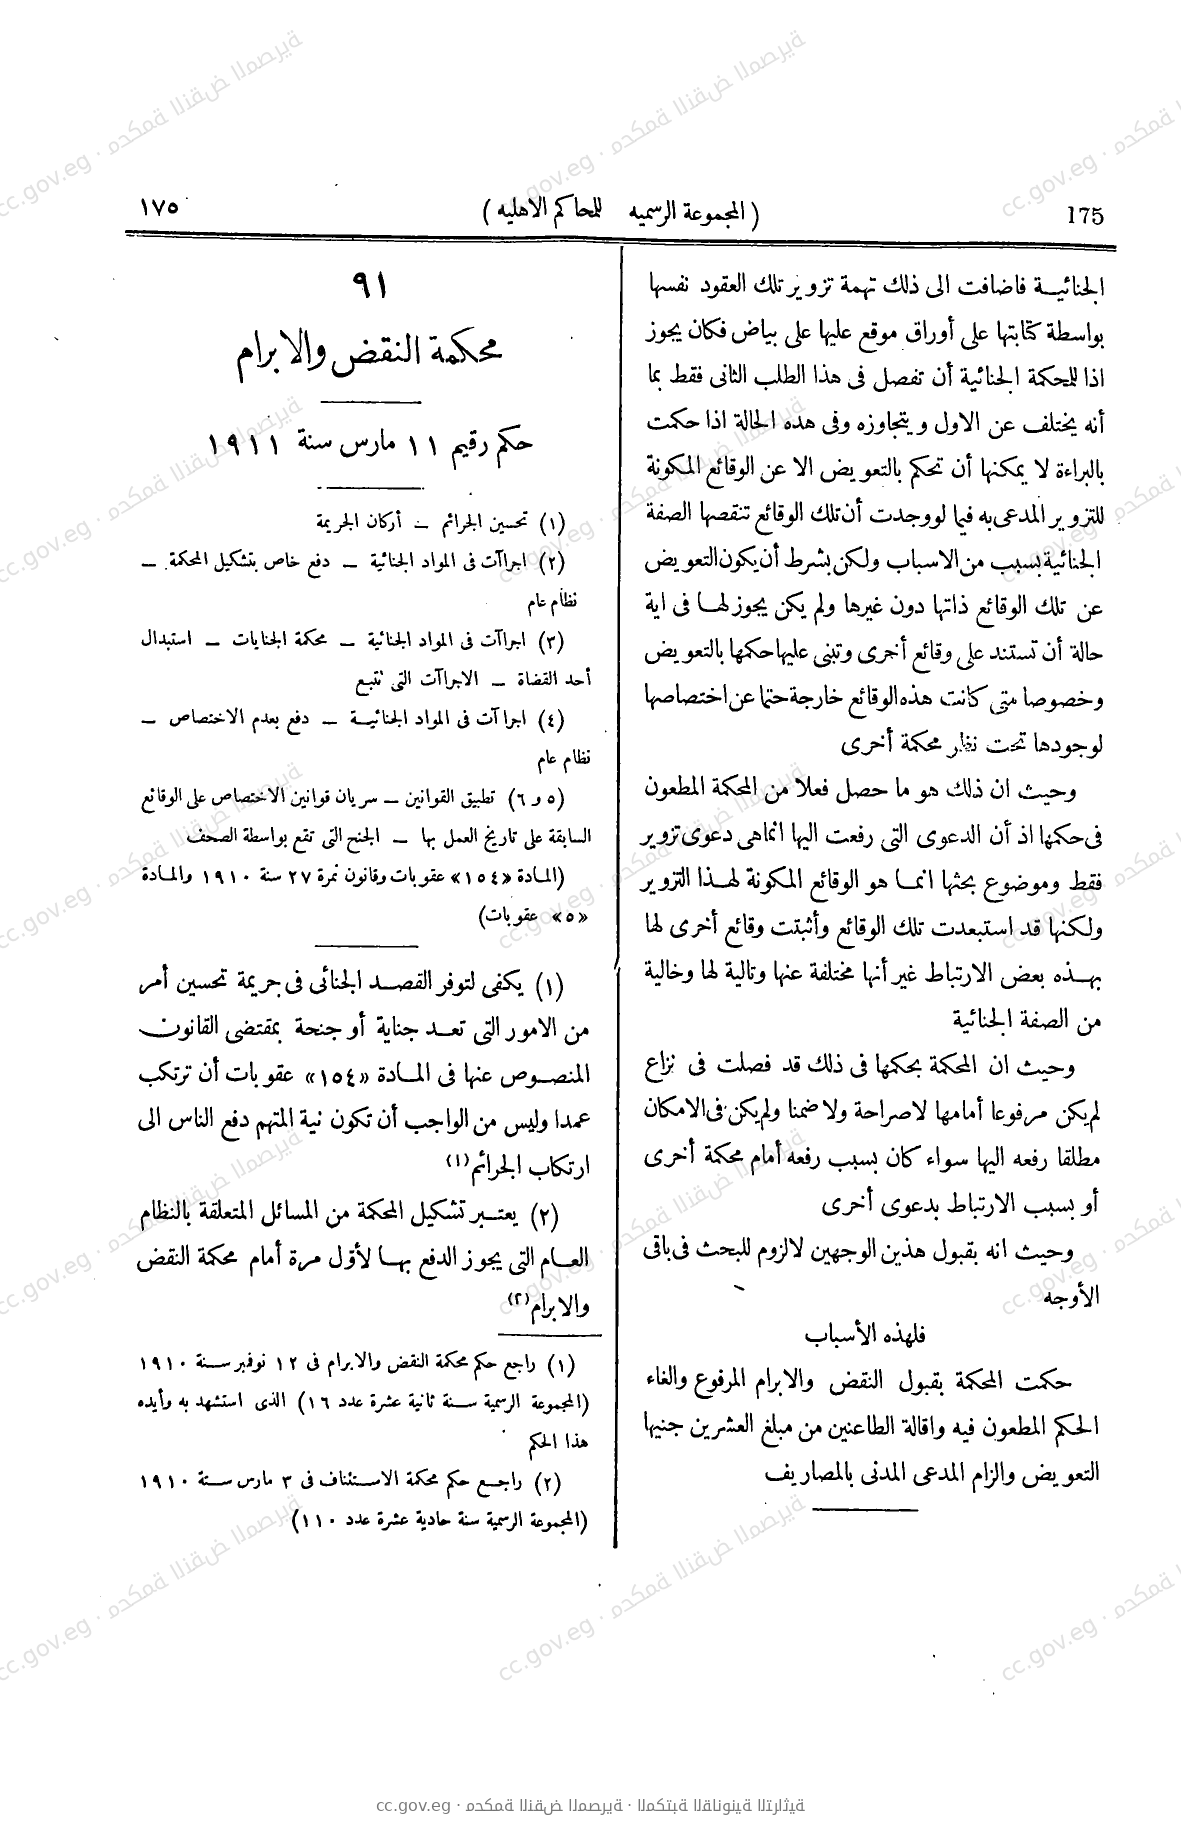 175 ( المجموعة الرسميه للمحاكم الاهليه ) ١٧٥
الجنائيـة فاضافت الى ذلك تهمة تزوير تلك العقود نفسها
بواسطة كتابتها على أوراق موقع عليها على بياض فكان يجوز
اذا للمحكمة الجنائية أن تفصل فى هذا الطلب الثانى فقط بما
أنه يختلف عن الاول ويتجاوزه وفى هذه الحالة اذا حكمت
بالبراءة لا يمكنها أن تحكم بالتعويض الا عن الوقائع المكونة
للتزوير المدعى به فيما لو وجدت أن تلك الوقائع تنقصها الصفة
الجنائية بسبب من الاسباب ولكن بشرط أن يكون التعويض
عن تلك الوقائع ذاتها دون غيرها ولم يكن يجوز لهـا فى اية
حالة أن تستند على وقائع أخرى وتبنى عليها حكمها بالتعويض
وخصوصا متى كانت هذه الوقائع خارجة حتما عن اختصاصها
لوجودها تحت نظر محكمة أخرى
وحيث ان ذلك هو ما حصل فعلا من المحكمة المطعون
فى حكمها اذ أن الدعوى التى رفعت اليها انماهى دعوى تزوير
فقط وموضوع بحثها انمـا هو الوقائع المكونة لهـذا التزوير
ولكنها قد استبعدت تلك الوقائع وأثبتت وقائع أخرى لها
بهـذه بعض الارتباط غير أنها مختلفة عنها وتالية لها وخالية
من الصفة الجنائية
وحيث ان المحكمة بحكمها فى ذلك قد فصلت فى نزاع
لم يكن مرفوعا أمامها لا صراحة ولا ضمنا ولم يكن فى الامكان
مطلقا رفعه اليها سواء كان بسبب رفعه أمام محكمة أخرى
أو بسبب الارتباط بدعوى أخرى
وحيث انه بقبول هذين الوجهين لا لزوم للبحث فى باقى
الأوجه
فلهذه الأسباب
حكمت المحكمة بقبول النقض والابرام المرفوع والغاء
الحكم المطعون فيه واقالة الطاعنين من مبلغ العشرين جنيها
التعويض والزام المدعى المدنى بالمصاريف
٩١
محكمة النقض والابرام
حكم رقيم ١١ مارس سنة ١٩١١
(١) تحسين الجرائم ــ أركان الجريمة
(٢) اجراآت فى المواد الجنائية ــ دفع خاص بتشكيل المحكمة ــ
نظام عام
(٣) اجراآت فى المواد الجنائية ــ محكمة الجنايات ــ استبدال
أحد القضاة ــ الاجراآت التى تتبع
(٤) اجراآت فى المواد الجنائيـة ــ دفع بعدم الاختصاص ــ
نظام عام
(٥ و ٦) تطبيق القوانين ــ سريان قوانين الاختصاص على الوقائع
السابقة على تاريخ العمل بها ــ الجنح التى تقع بواسطة الصحف
(المـادة «١٥٤» عقوبات وقانون نمرة ٢٧ سنة ١٩١٠ والمـادة
«٥» عقوبات)
(١) يكفى لتوفر القصـد الجنائى فى جريمة تحسين أمر
من الامور التى تعـد جناية أو جنحة بمقتضى القانون
المنصـوص عنها فى المـادة «١٥٤» عقوبات أن ترتكب
عمدا وليس من الواجب أن تكون نية المتهم دفع الناس الى
ارتكاب الجرائم(١)
(٢) يعتـبر تشكيل المحكمة من المسائل المتعلقة بالنظام
العـام التى يجوز الدفع بهـا لأوّل مرة أمام محكمة النقض
والابرام(٢)
(١) راجع حكم محكمة النقض والابرام فى ١٢ نوفمبر سـنة ١٩١٠
(المجموعة الرسمية سـنة ثانية عشرة عدد ١٦) الذى استشهد به وأيده
هذا الحكم
(٢) راجـع حكم محكمة الاسـتئناف فى ٣ مارس سـنة ١٩١٠
(المجموعة الرسمية سنة حادية عشرة عدد ١١٠)
cc.gov.eg · محكمة النقض المصرية · المكتبة القانونية التراثية